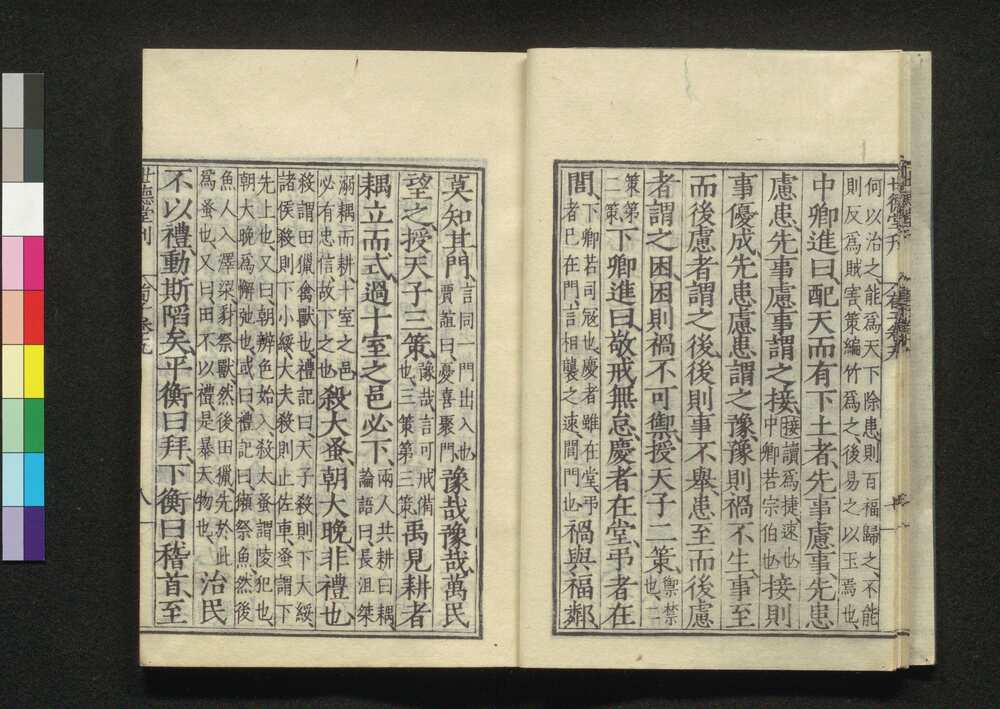 何以治之能爲天下除患則百福歸之不能
則反爲賊害策編竹爲之後易之以玉焉也
中卿進曰配天而有下土者先事慮事先患
慮患先事慮事謂之接接讀爲捷速也中卿若宗伯也接則
事優成先患慮患謂之豫豫則禍不生事至
而後慮者謂之後後則事不舉患至而後慮
者謂之困困則禍不可禦授天子二策禦禁也二
策第二策下卿進曰敬戒無怠慶者在堂弔者在
閭下卿若司冦也慶者雖在堂弔者已在門言相襲之速閭門也禍與福鄰
莫知其門言同一門出入也賈誼曰憂喜聚門豫哉豫哉萬民
望之授天子三策豫哉言可戒備也三策第三策禹見耕者
耦立而式過十室之邑必下兩人共耕曰耦論語曰長沮桀
溺耦而耕十室之邑必有忠信故下之也殺大蚤朝大晚非禮也
殺謂田獵禽獸也禮記曰天子殺則下大綏
諸侯殺則下小綏大夫殺則止佐車蚤謂下
先上也又曰朝辨色始入殺太蚤謂陵犯也
朝大晚爲懈弛也或曰禮記曰獺祭魚然後
魚人入澤梁豺祭獸然後田獵先於此
爲蚤也又曰田不以禮是暴天物也治民
不以禮動斯陷矣平衡曰拜下衡曰稽首至
世德堂刊
八